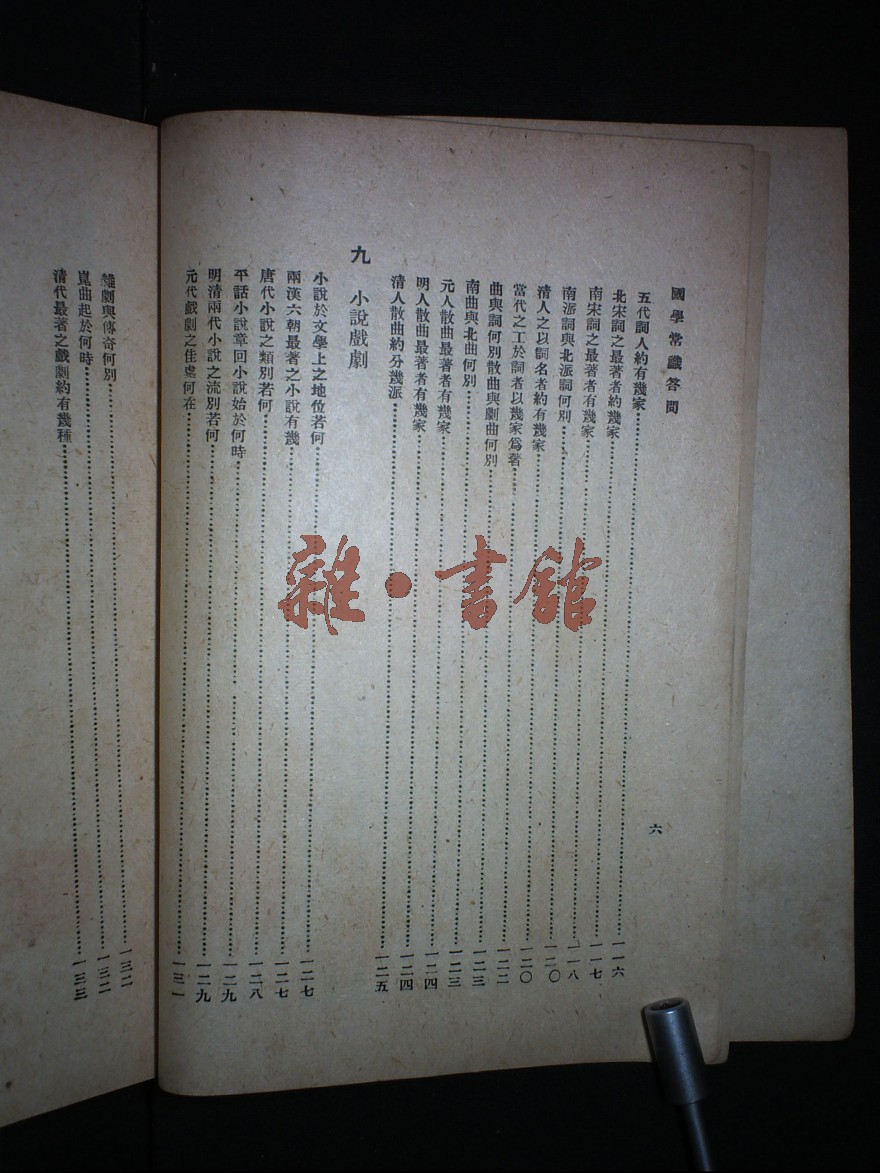 國學常識答問
六
五代詞人約有幾家……一一六
北宋詞之最著者約幾家……一一七
南宋詞之最著者有幾家……一一八
南派詞與北派詞何別……一二〇
清人之以詞名者約有幾家……一二〇
當代之工於詞者以幾家爲著……一二二
曲與詞何別散曲與劇曲何別……一二三
南曲與北曲何別……一二三
元人散曲最著者有幾家……一二四
明人散曲最著者有幾家……一二四
清人散曲約分幾派……一二五
九 小說戲劇
小說於文學上之地位若何……一二七
兩漢六朝最著之小說有幾……一二七
唐代小說之類別若何……一二八
平話小說章回小說始於何時……一二九
明清兩代小說之流別若何……一二九
元代戲劇之佳處何在……一三一
雜劇與傳奇何別……一三二
崑曲起於何時……一三二
清代最著之戲劇約有幾種……一三三
雜·書館